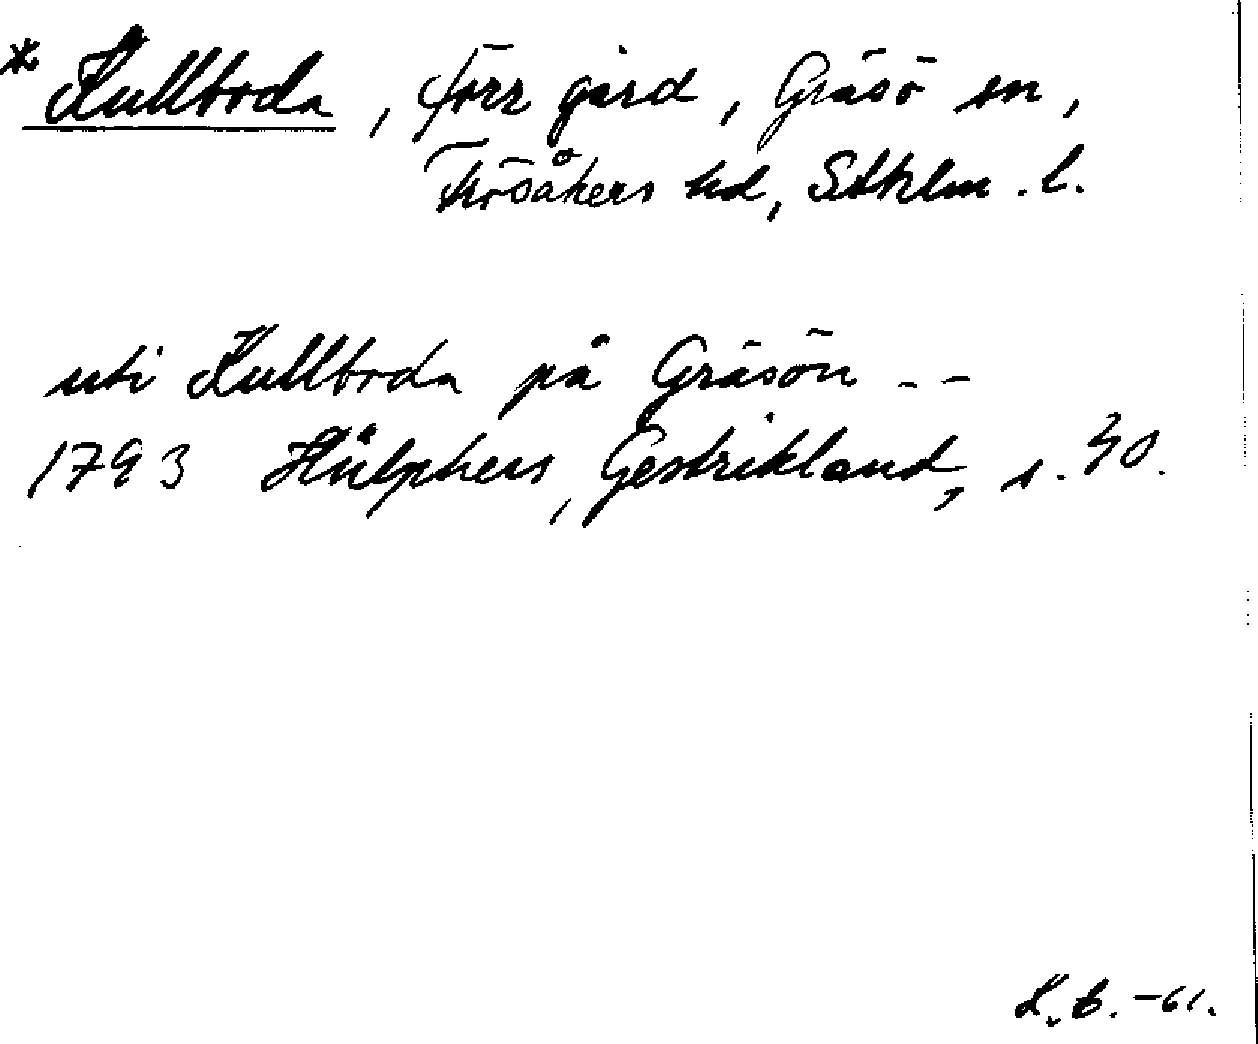 * Kullboda, förr gård, Gräsö sn,
Frösåkers hd, Sthlm. l.
uti Kullboda på Gräsön - -
1793 Hülphers, Gestrikland, s. 30.
K. B. -61.